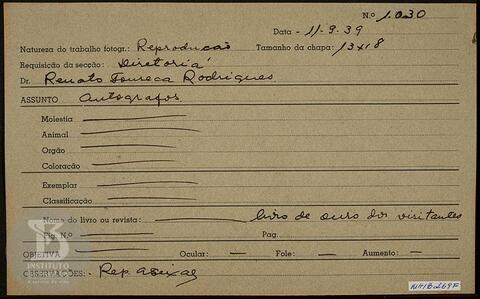 N.º 1.030
Data - 11-9-39
Natureza do trabalho fotogr.: Reprodução Tamanho da chapa: 13x18
Requisição da secção: Diretoria
Dr. Renato Fonseca Rodrigues
ASSUNTO Autografos
Molestia
Animal
Orgão
Coloração
Exemplar
Classificação
Nome do livro ou revista: livro de ouro dos visitantes
Fig. N.º Pag.
OBJETIVA Ocular: — Fole: — Aumento: —
OBSERVAÇÕES: - Rep.
INSTITUTO